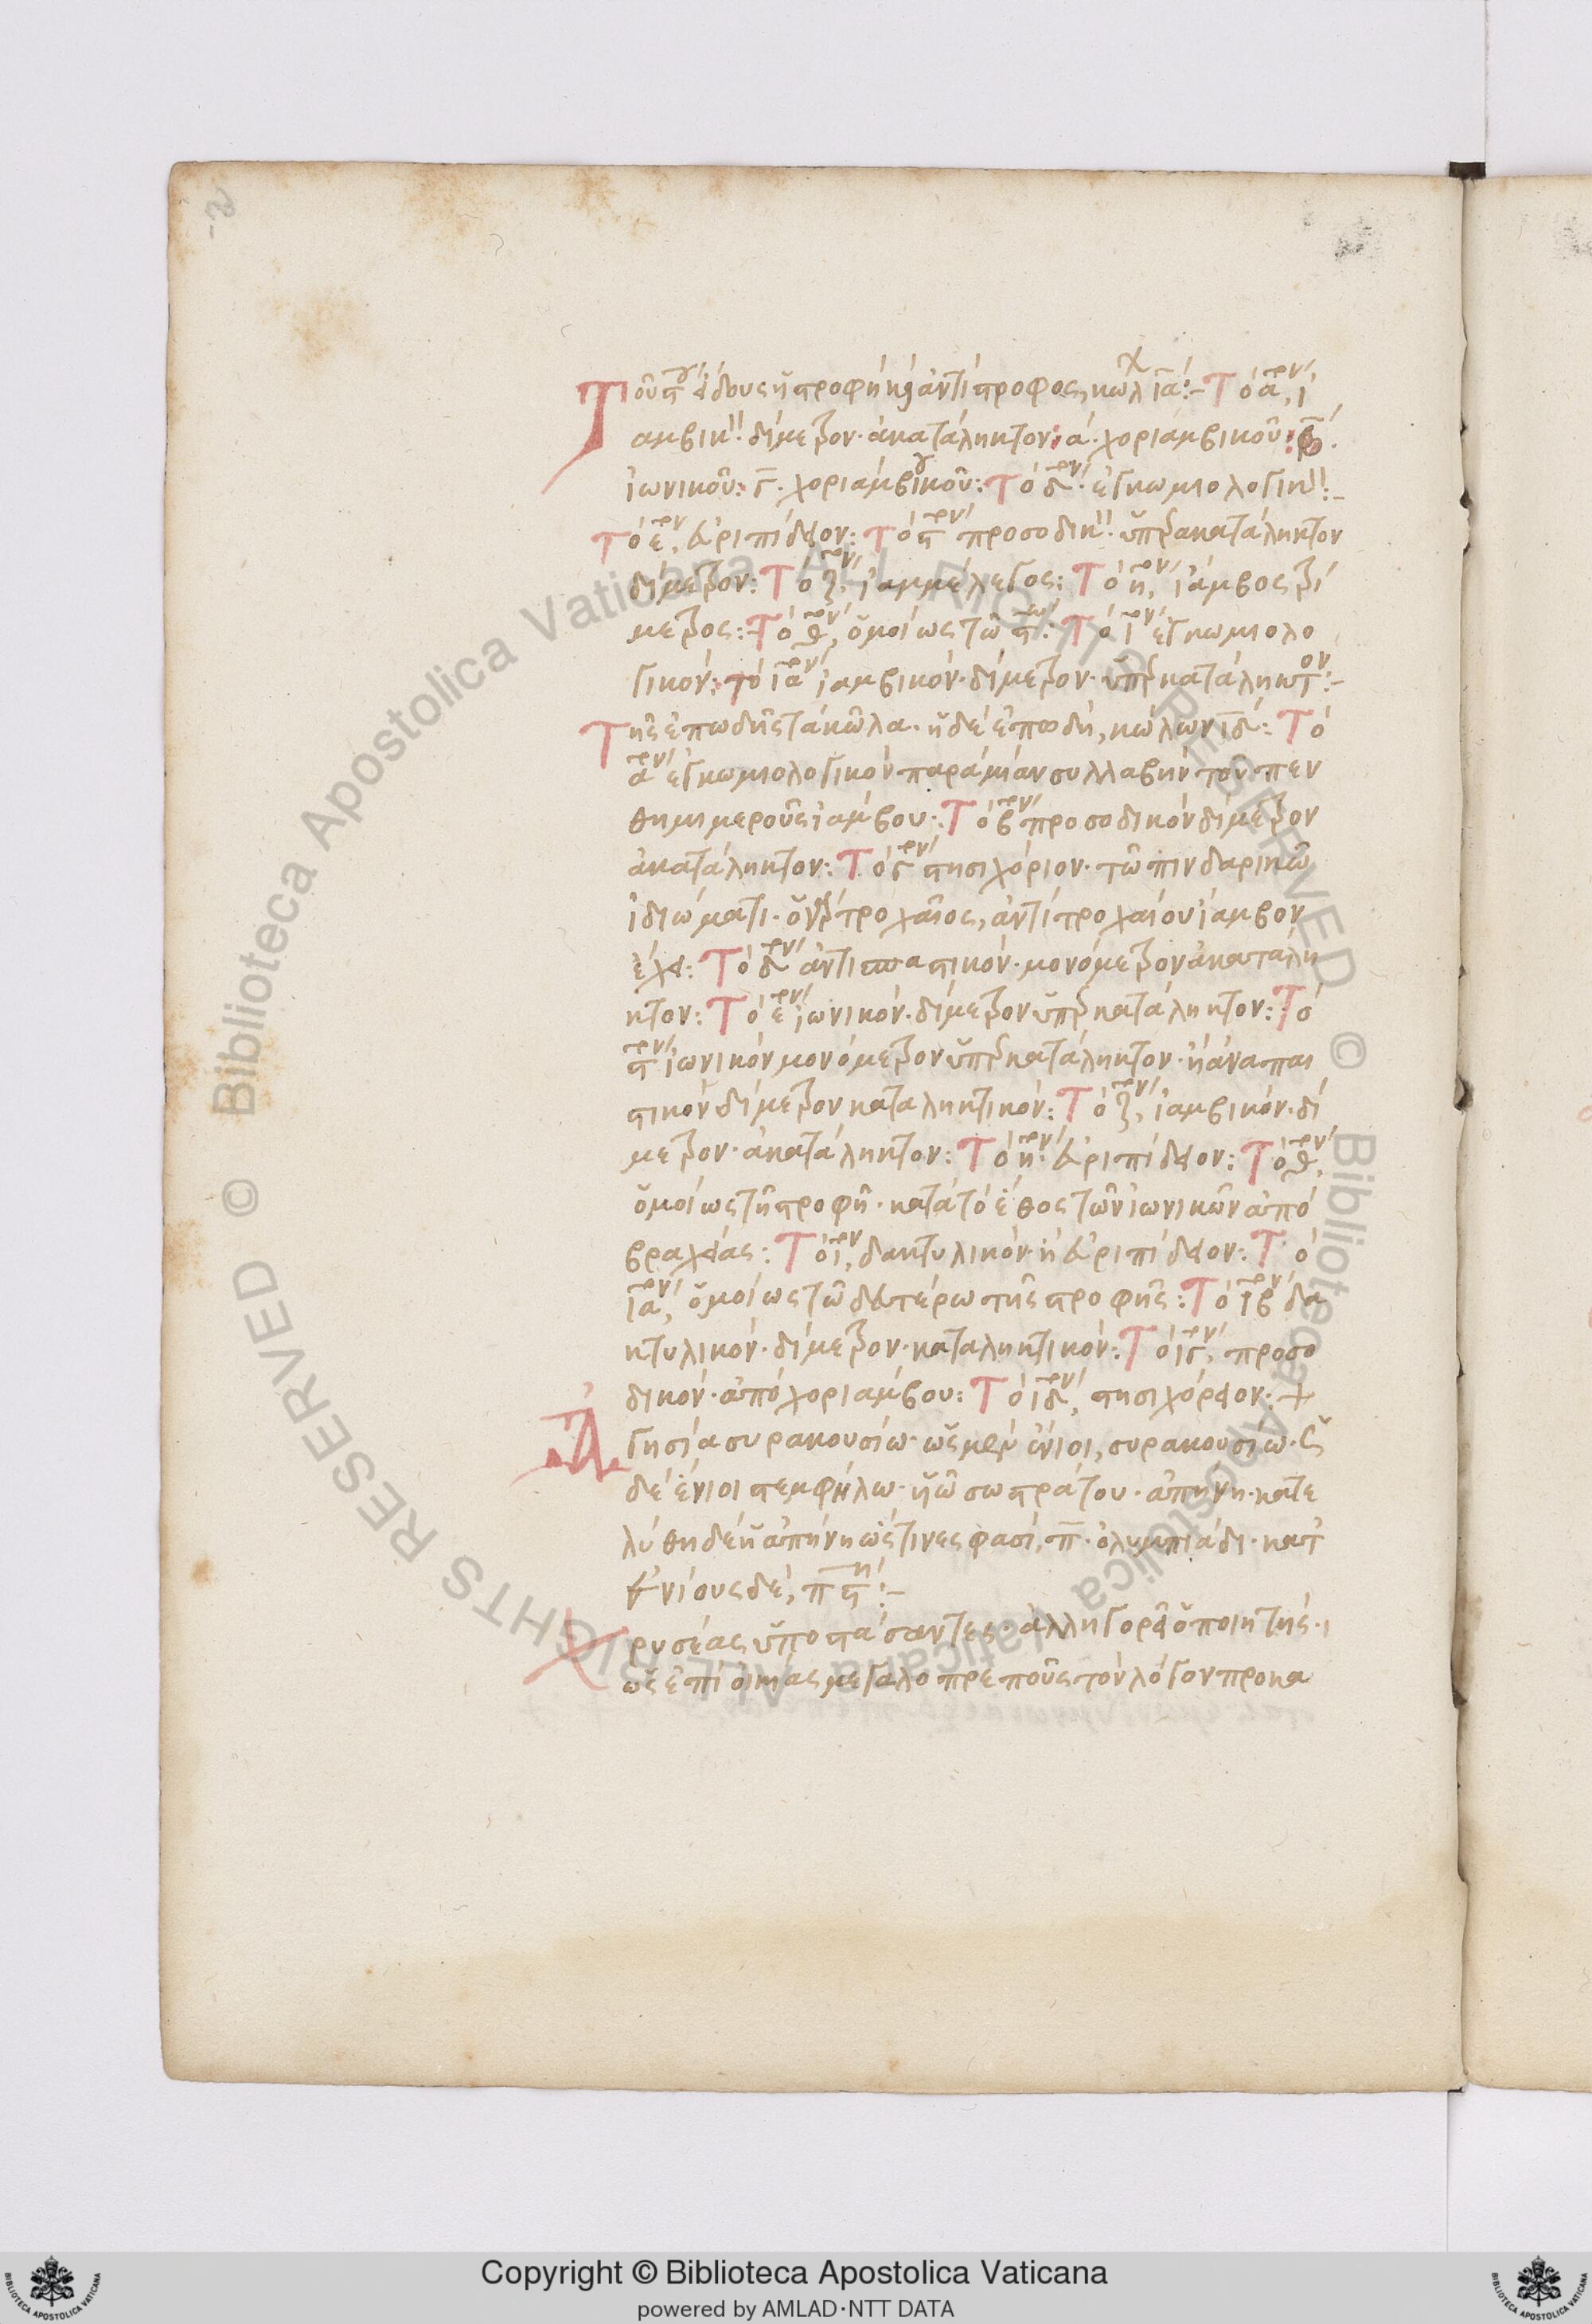 Τοῦ ϛ' εἴδους ἡ στροφὴ καὶ ἀντίστροφος, κώλ ια: Τὸ α, ἰ
αμβικ'' δίμετρον· ἀκατάληκτον: α· χοριαμβικοῦ: β.
ἰωνικοῦ: γ· χοριαμβικοῦ: Τὸ δ· ἐγκωμιολογικ'':-
Τὸ ε, εὐριπίδειον: Τὸ ϛ προσοδικ''· ὑπερακατάληκτον
δίμετρον: Τὸ ζ, ἰαμμέλεγος: Τὸ η, ἴαμβος τρί
μετρος: Τὸ θ, ὁμοίως τῶ ϛ: Τὸ ι ἐγκωμιολο
γικόν: τὸ ια ἰαμβικόν· δίμετρον· ὑπερκατάληκτον:-
Τῆς ἐπωδῆς τὰ κῶλα· ἡ δὲ ἐπωδὴ, κώλων ιδ: Τὸ
α ἐγκωμιολογικὸν παρὰ μίαν συλλαβὴν τοῦ πεν
θημιμεροῦς ἰάμβου: Τὸ β προσοδικὸν δίμετρον
ἀκατάληκτον: Τὸ γ στησιχόριον· τῶ πινδαρικῶ
ἰδιώματι· ὁ τροχαῖος, ἀντὶ τροχαίου ἴαμβον
ἔχει: Τὸ δ ἀντισπαστικόν· μονόμετρον ἀκατάλη
κτον: Τὸ ε ἰωνικόν· δίμετρον ὑπερκατάληκτον: Τὸ
ϛ ἰωνικὸν μονόμετρον ὑπερκατάληκτον· ἢ ἀναπαι
στικὸν δίμετρον καταληκτικόν: Τὸ ζ, ἰαμβικόν· δί
μετρον· ἀκατάληκτον: Τὸ η· εὐριπίδειον: Τὸ θ,
ὁμοίως τῆ στροφῆ· κατὰ τὸ ἔθος τῶν ἰωνικῶν ἀπὸ
βραχείας: Τὸ ι, δακτυλικόν· ἢ εὐριπίδειον: Τὸ
ια, ὁμοίως τῶ δευτέρω τῆς στροφῆς: Τὸ ιβ δα
κτυλικόν· δίμετρον· καταληκτικόν: Τὸ ιγ, προσο
δικόν· ἀπὸ χοριάμβου: Τὸ ιδ, στησιχόρειον· +
Ἀγησία συρακουσίω· ὡς μὲν ἔνιοι, συρακουσίω· ὡς
δὲ ἔνιοι στεμφήλω· υἱῶ σωστράτου· ἀπήνη· κατε
λύθη δὲ ἡ ἀπήνη ὥς τινες φασὶ, π· ὀλυμπιάδι· κατ
ενίους δὲ, πϛ:-
Χρυσέας ὑποστάσαντες· ἀλληγορεῖ ὁ ποιητής·
ὡς ἐπὶ οἰκίας μεγαλοπρεποῦς τὸν λόγον προκα
Copyright © Biblioteca Apostolica Vaticana
powered by AMLAD·NTT DATA